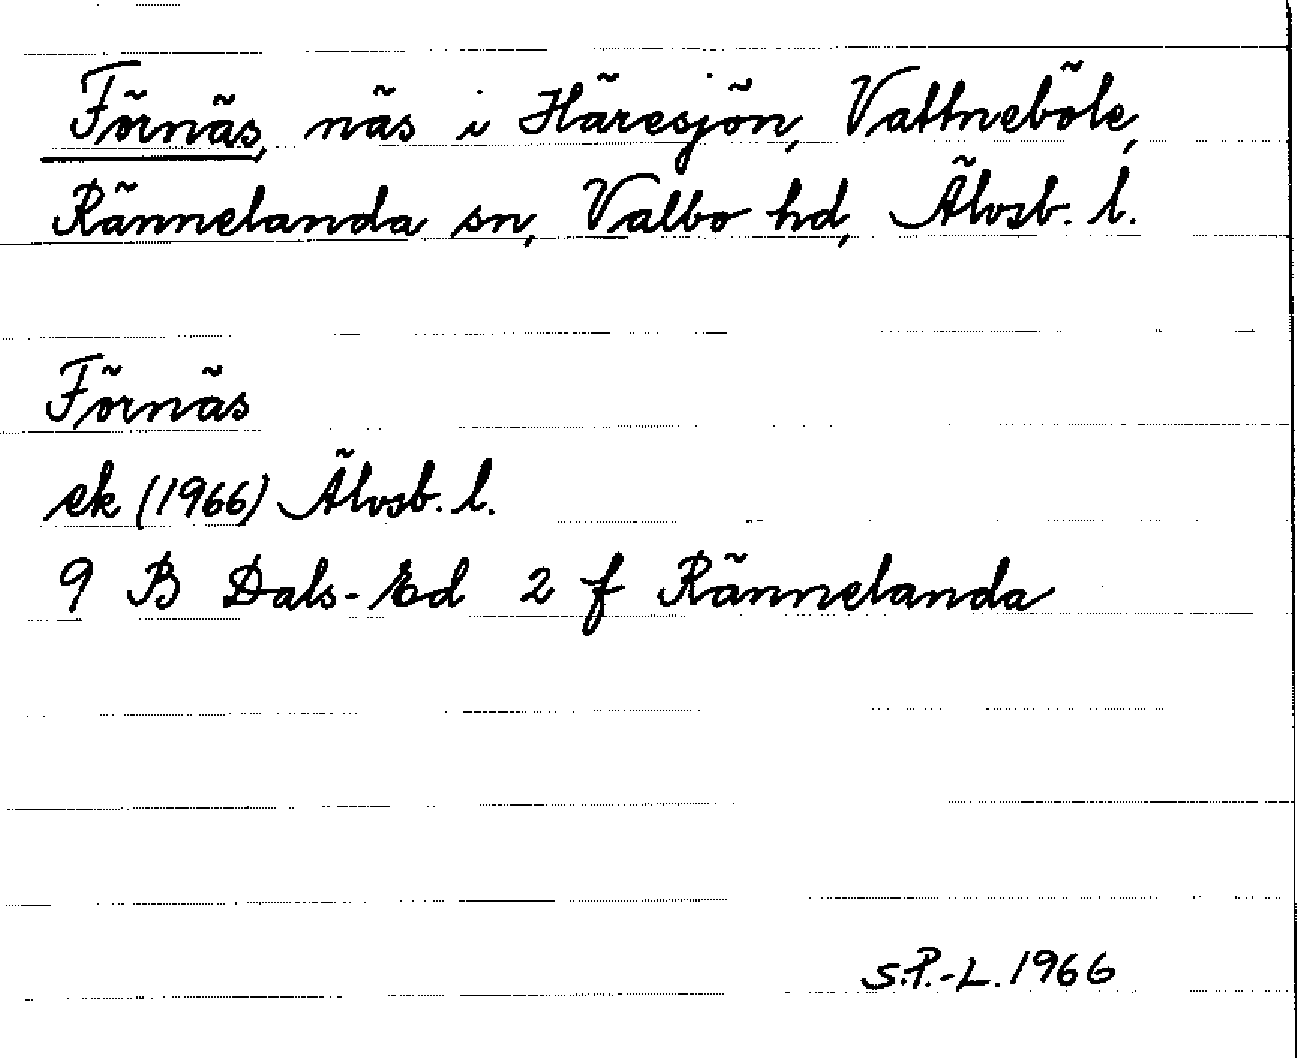 Förnäs, näs i Häresjön, Vattneböle,
Rännelanda sn, Valbo hd, Älvsb. l.
Förnäs
ek (1966) Älvsb. l.
9 B Dals-Ed 2 f Rännelanda
S.P.-L. 1966